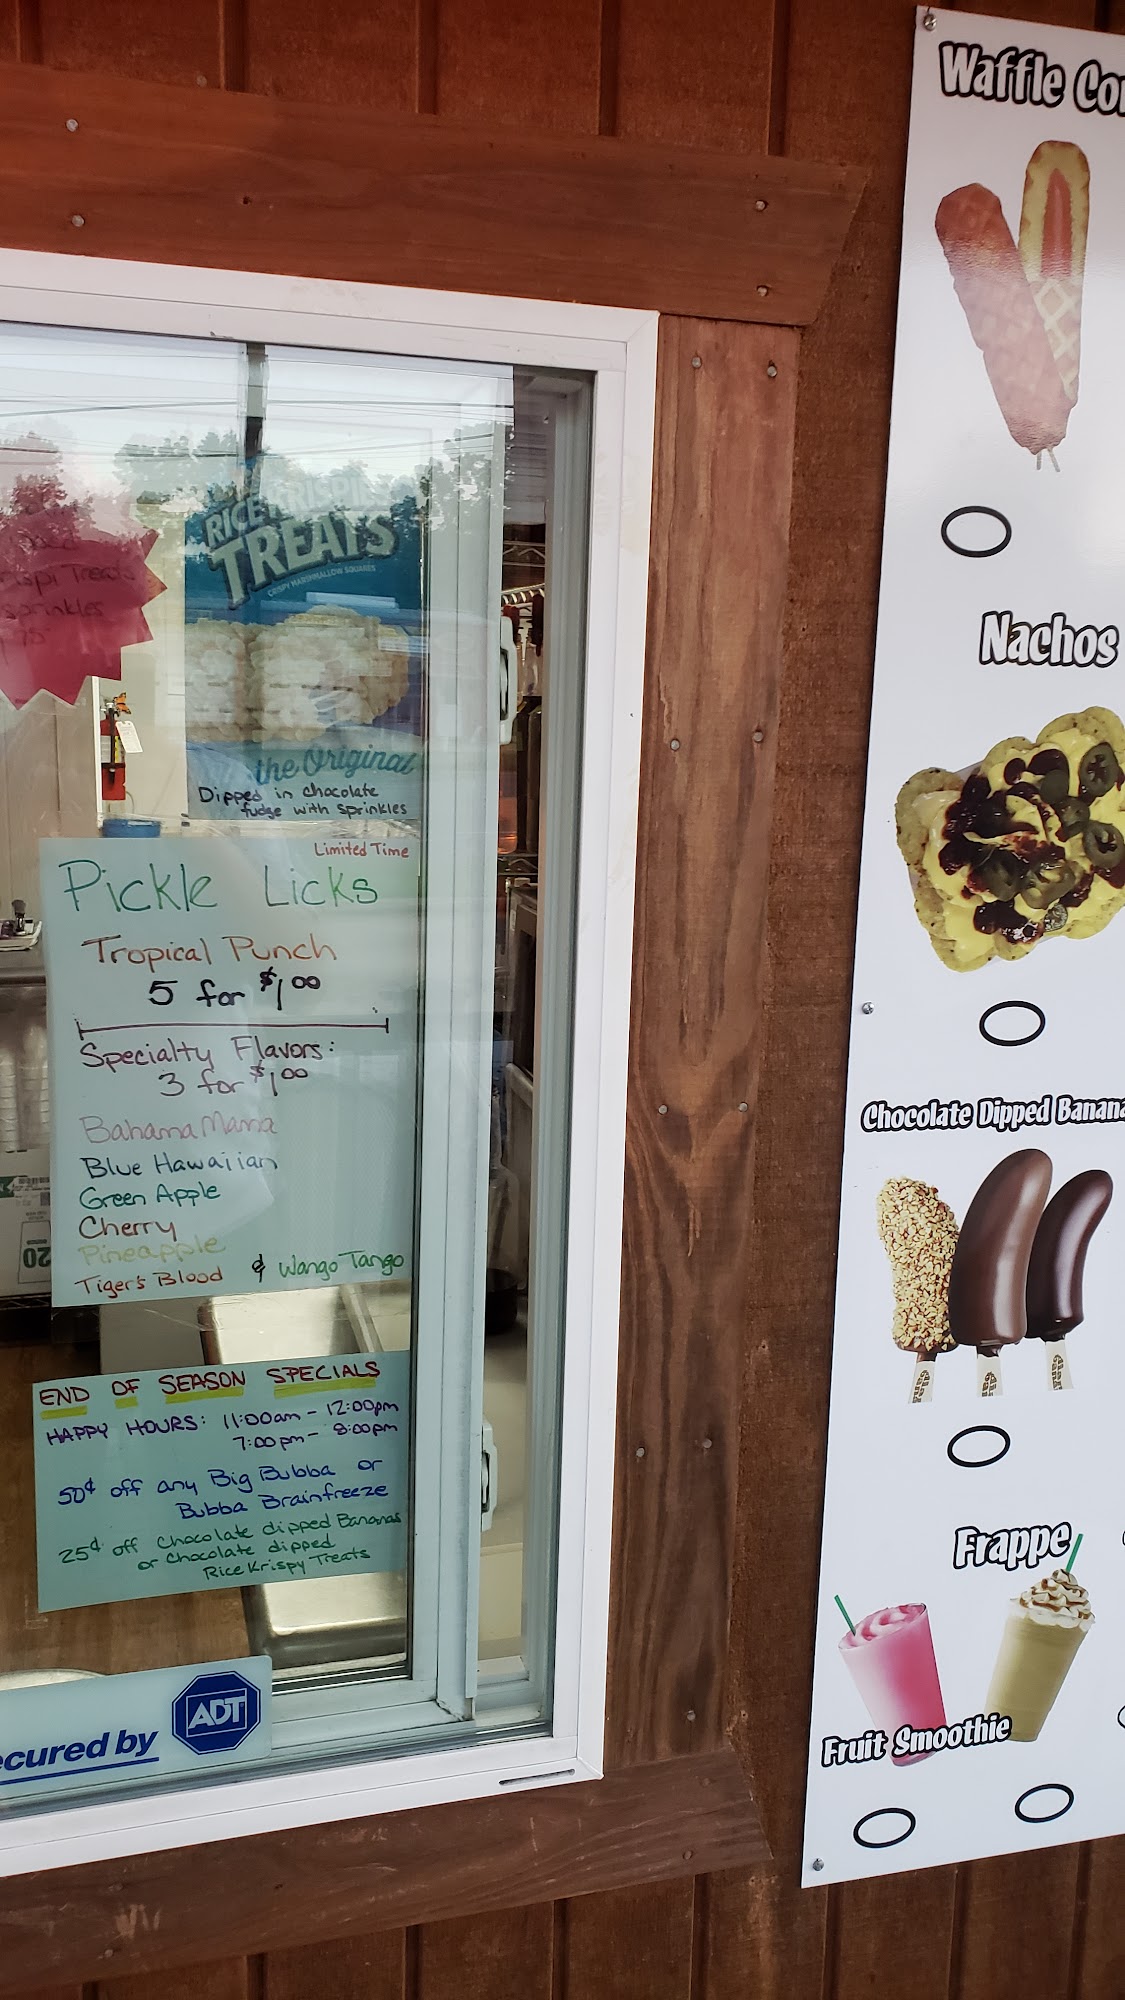 RICE KRISPIES
TREATS
CRISPY MARSHMALLOW SQUARES
the Original
Dipped in chocolate
fudge with sprinkles
sprinkles
Limited Time
Pickle Licks
Tropical Punch
5 for $1.00
Specialty Flavors:
3 for $1.00
Bahama Mama
Blue Hawaiian
Green Apple
Cherry
Pineapple
Tiger's Blood & Wango Tango
END OF SEASON SPECIALS
HAPPY HOURS: 11:00am - 12:00pm
7:00pm - 8:00pm
50¢ off any Big Bubba or
Bubba Brainfreeze
25¢ off Chocolate dipped Bananas
or Chocolate dipped
Rice Krispy Treats
ecured by ADT
Waffle Co
Nachos
Chocolate Dipped Banana
Frappe
Fruit Smoothie